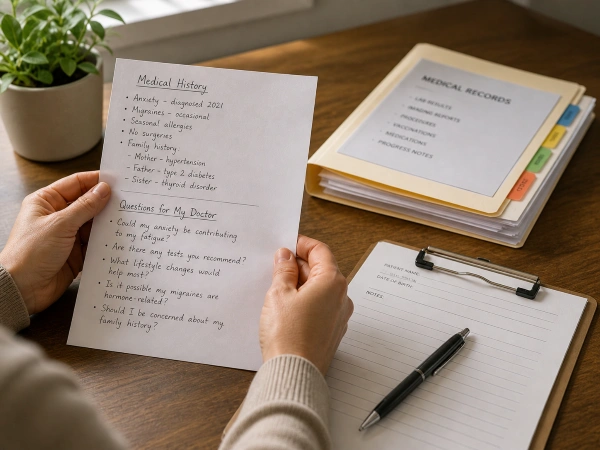 Medical History
• Anxiety – diagnosed 2021
• Migraines – occasional
• Seasonal allergies
• No surgeries
• Family history
– Mother – hypertension
– Father – type 2 diabetes
– Sister – thyroid disorder
Questions for My Doctor
• Could my anxiety be contributing
to my fatigue?
• Are there any tests you recommend?
• What lifestyle changes would
help most?
• Is it possible my migraines are
hormone-related?
• Should I be concerned about my
family history?
MEDICAL RECORDS
LAB RESULTS
IMAGING REPORTS
VACCINATIONS
MEDICATIONS
PROGRESS NOTES
PATIENT NAME
DATE OF BIRTH
NOTES: